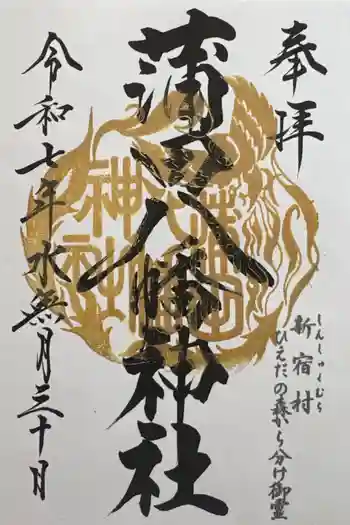 奉拝
新宿村
しんしゅくむら
ひえだの森から分け御霊
蒲田八幡神社
蒲田
八幡
神社
令和七年水無月三十日